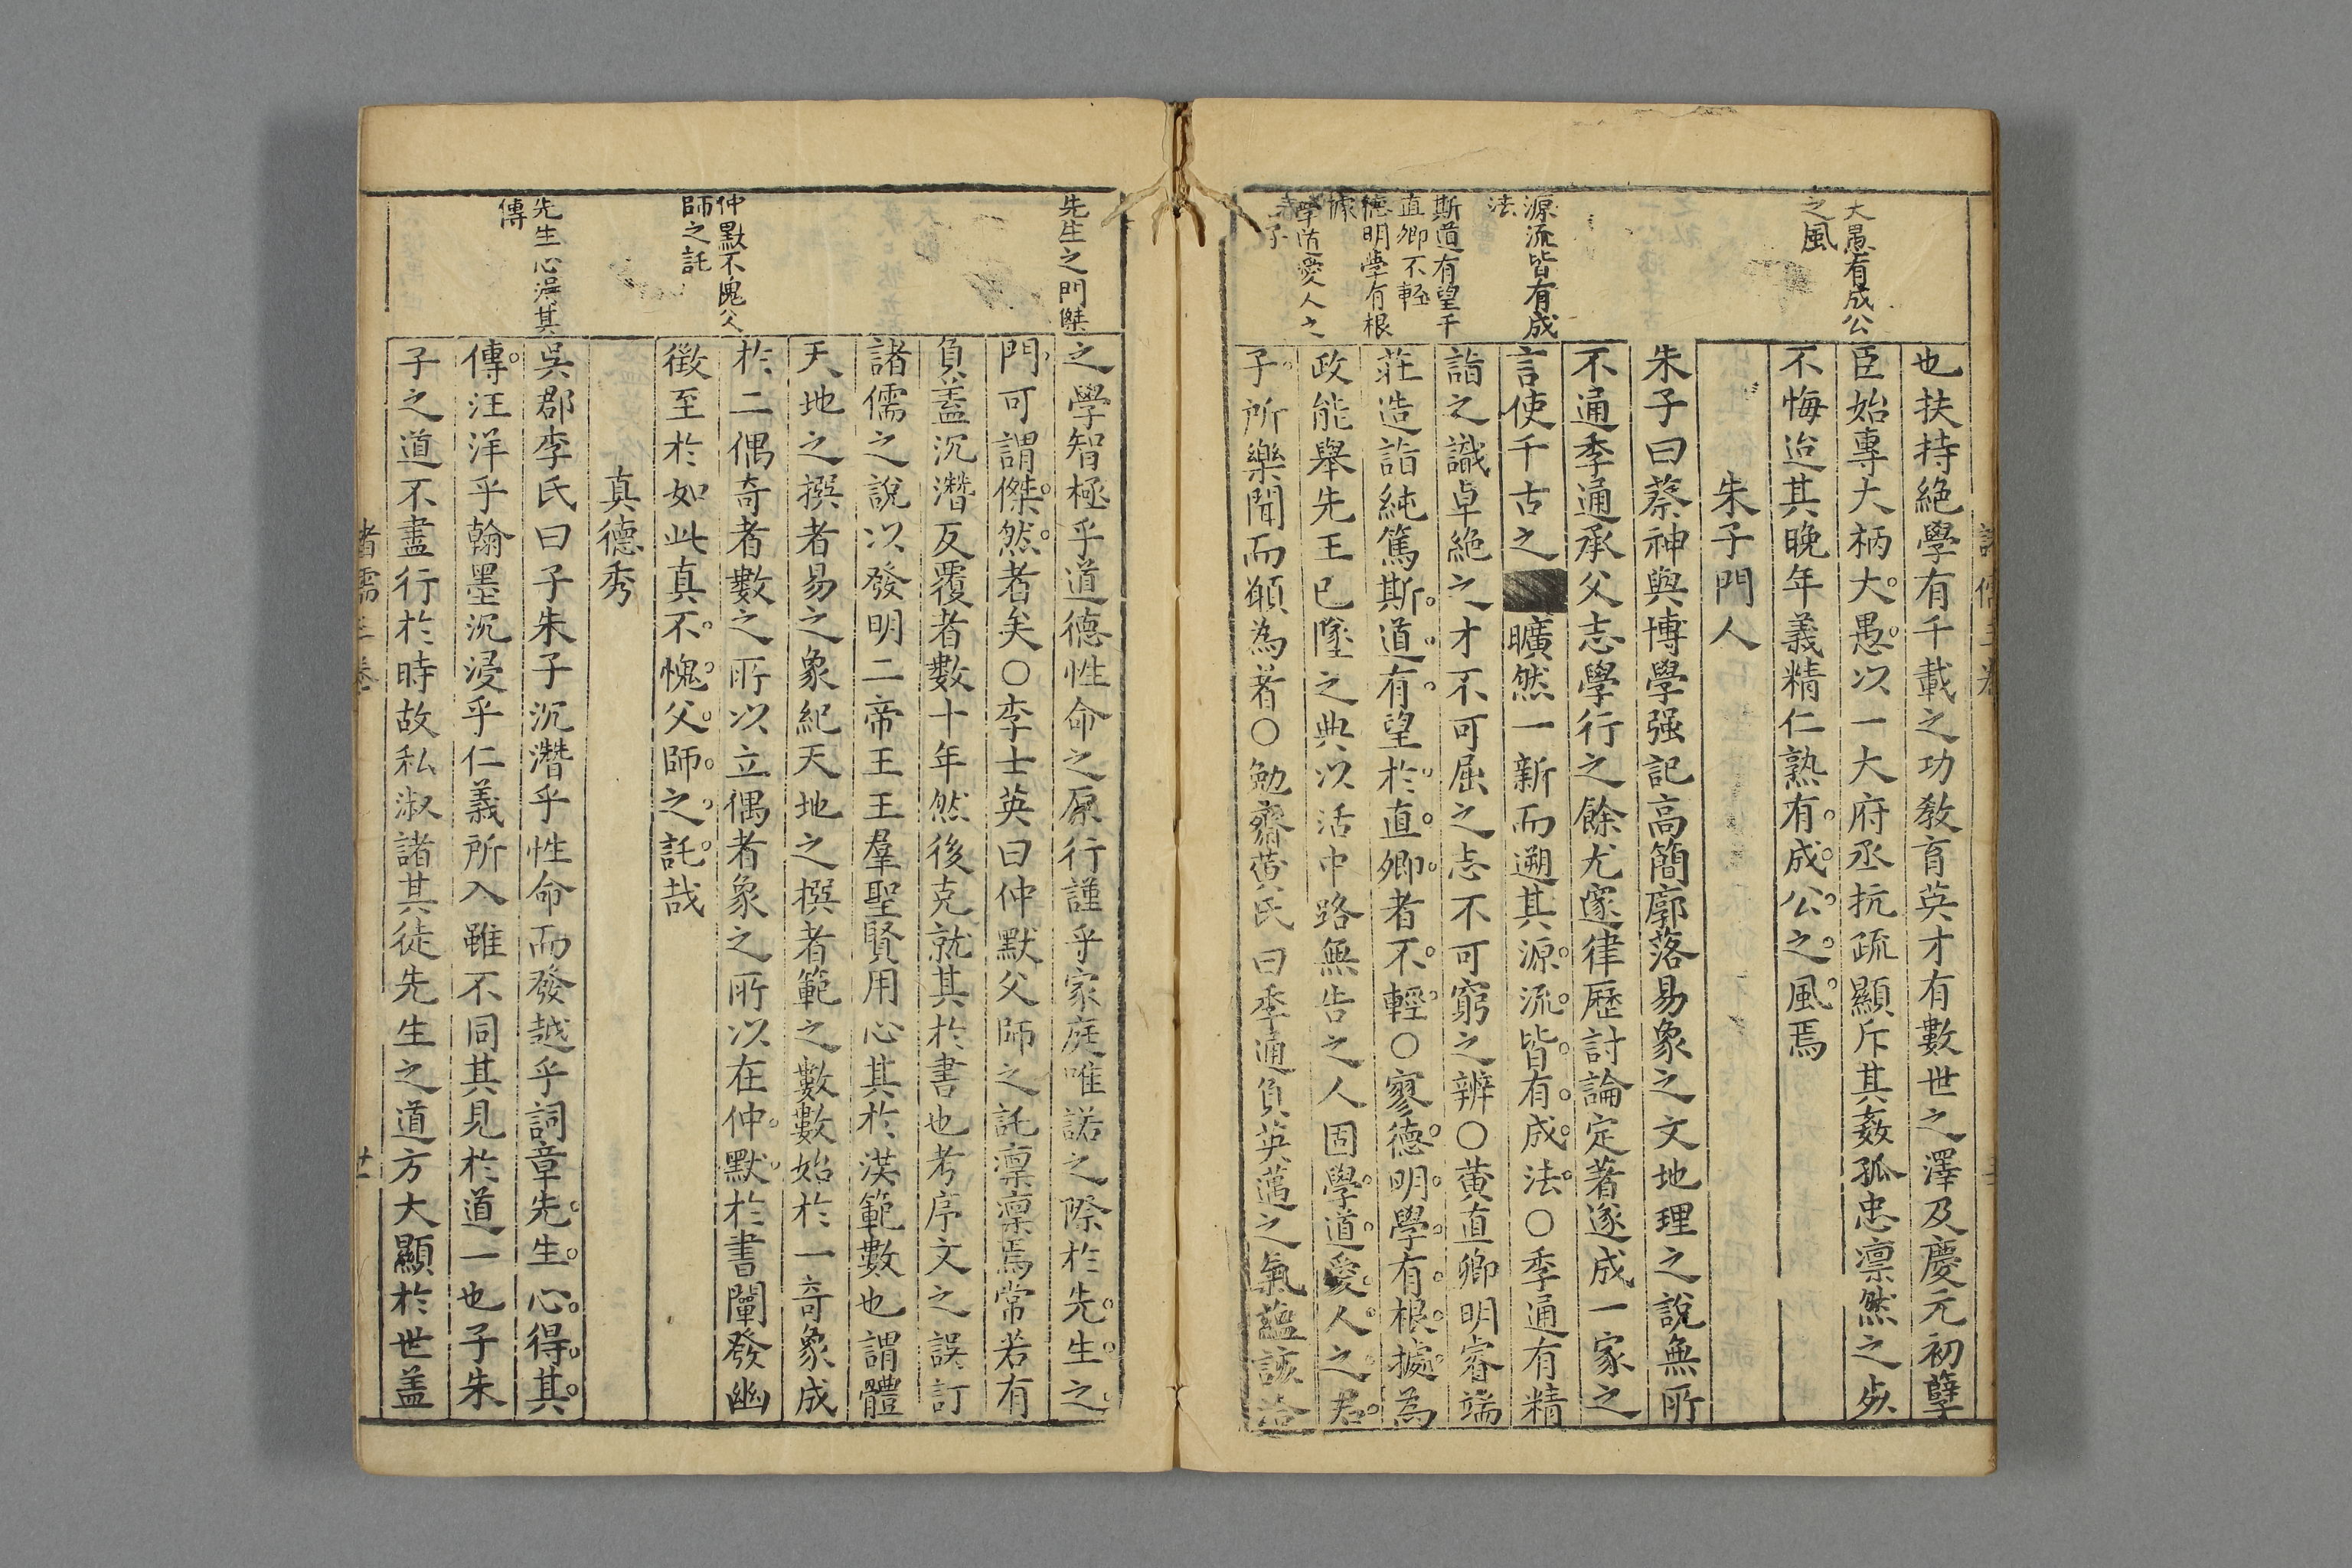 大愚有成公
之風
源流皆有成
法
斯道有望于
直卿不輕
德明學有根
據
學道愛人之
君子
也扶持絶學有千載之功教育英才有數世之澤及慶元初孽
臣始專大柄大愚以一大府丞抗疏顯斥其姦孤忠凛然之死
不悔迨其晚年義精仁熟有成公之風焉
朱子門人
朱子曰蔡神與博學强記高簡廓落易象之文地理之說無所
不通季通承父志學行之餘尤邃律歷討論定著遂成一家之
言使千古之曠然一新而遡其源流皆有成法○季通有精
詣之識卓絶之才不可屈之志不可窮之辨○黄直卿明睿端
莊造詣純篤斯道有望於直卿者不輕○寥德明學有根據為
政能舉先王已墜之典以活中路無告之人固學道愛人之君
子所樂聞而願為者○勉齋黄氏曰季通負英邁之氣蘊該洽
先生之門傑
仲默不愧父
師之託
先生心得其
傳
之學智極乎道德性命之原行謹乎家庭唯諾之際於先生之
門可謂傑然者矣○李士英曰仲默父師之託凛凛焉常若有
負蓋沉潛反覆者數十年然後克就其於書也考序文之誤訂
諸儒之說以發明二帝王王羣聖賢用心其於漢範數也謂體
天地之撰者易之象紀天地之撰者範之數數始於一奇象成
於二偶奇者數之所以立偶者象之所以在仲默於書闡發幽
徵至於如此真不愧父師之託哉
真德秀
吳郡李氏曰子朱子沉潛乎性命而發越乎詞章先生心得其
傳汪洋乎翰墨沉浸乎仁義所入雖不同其見於道一也子朱
子之道不盡行於時故私淑諸其徒先生之道方大顯於世盖